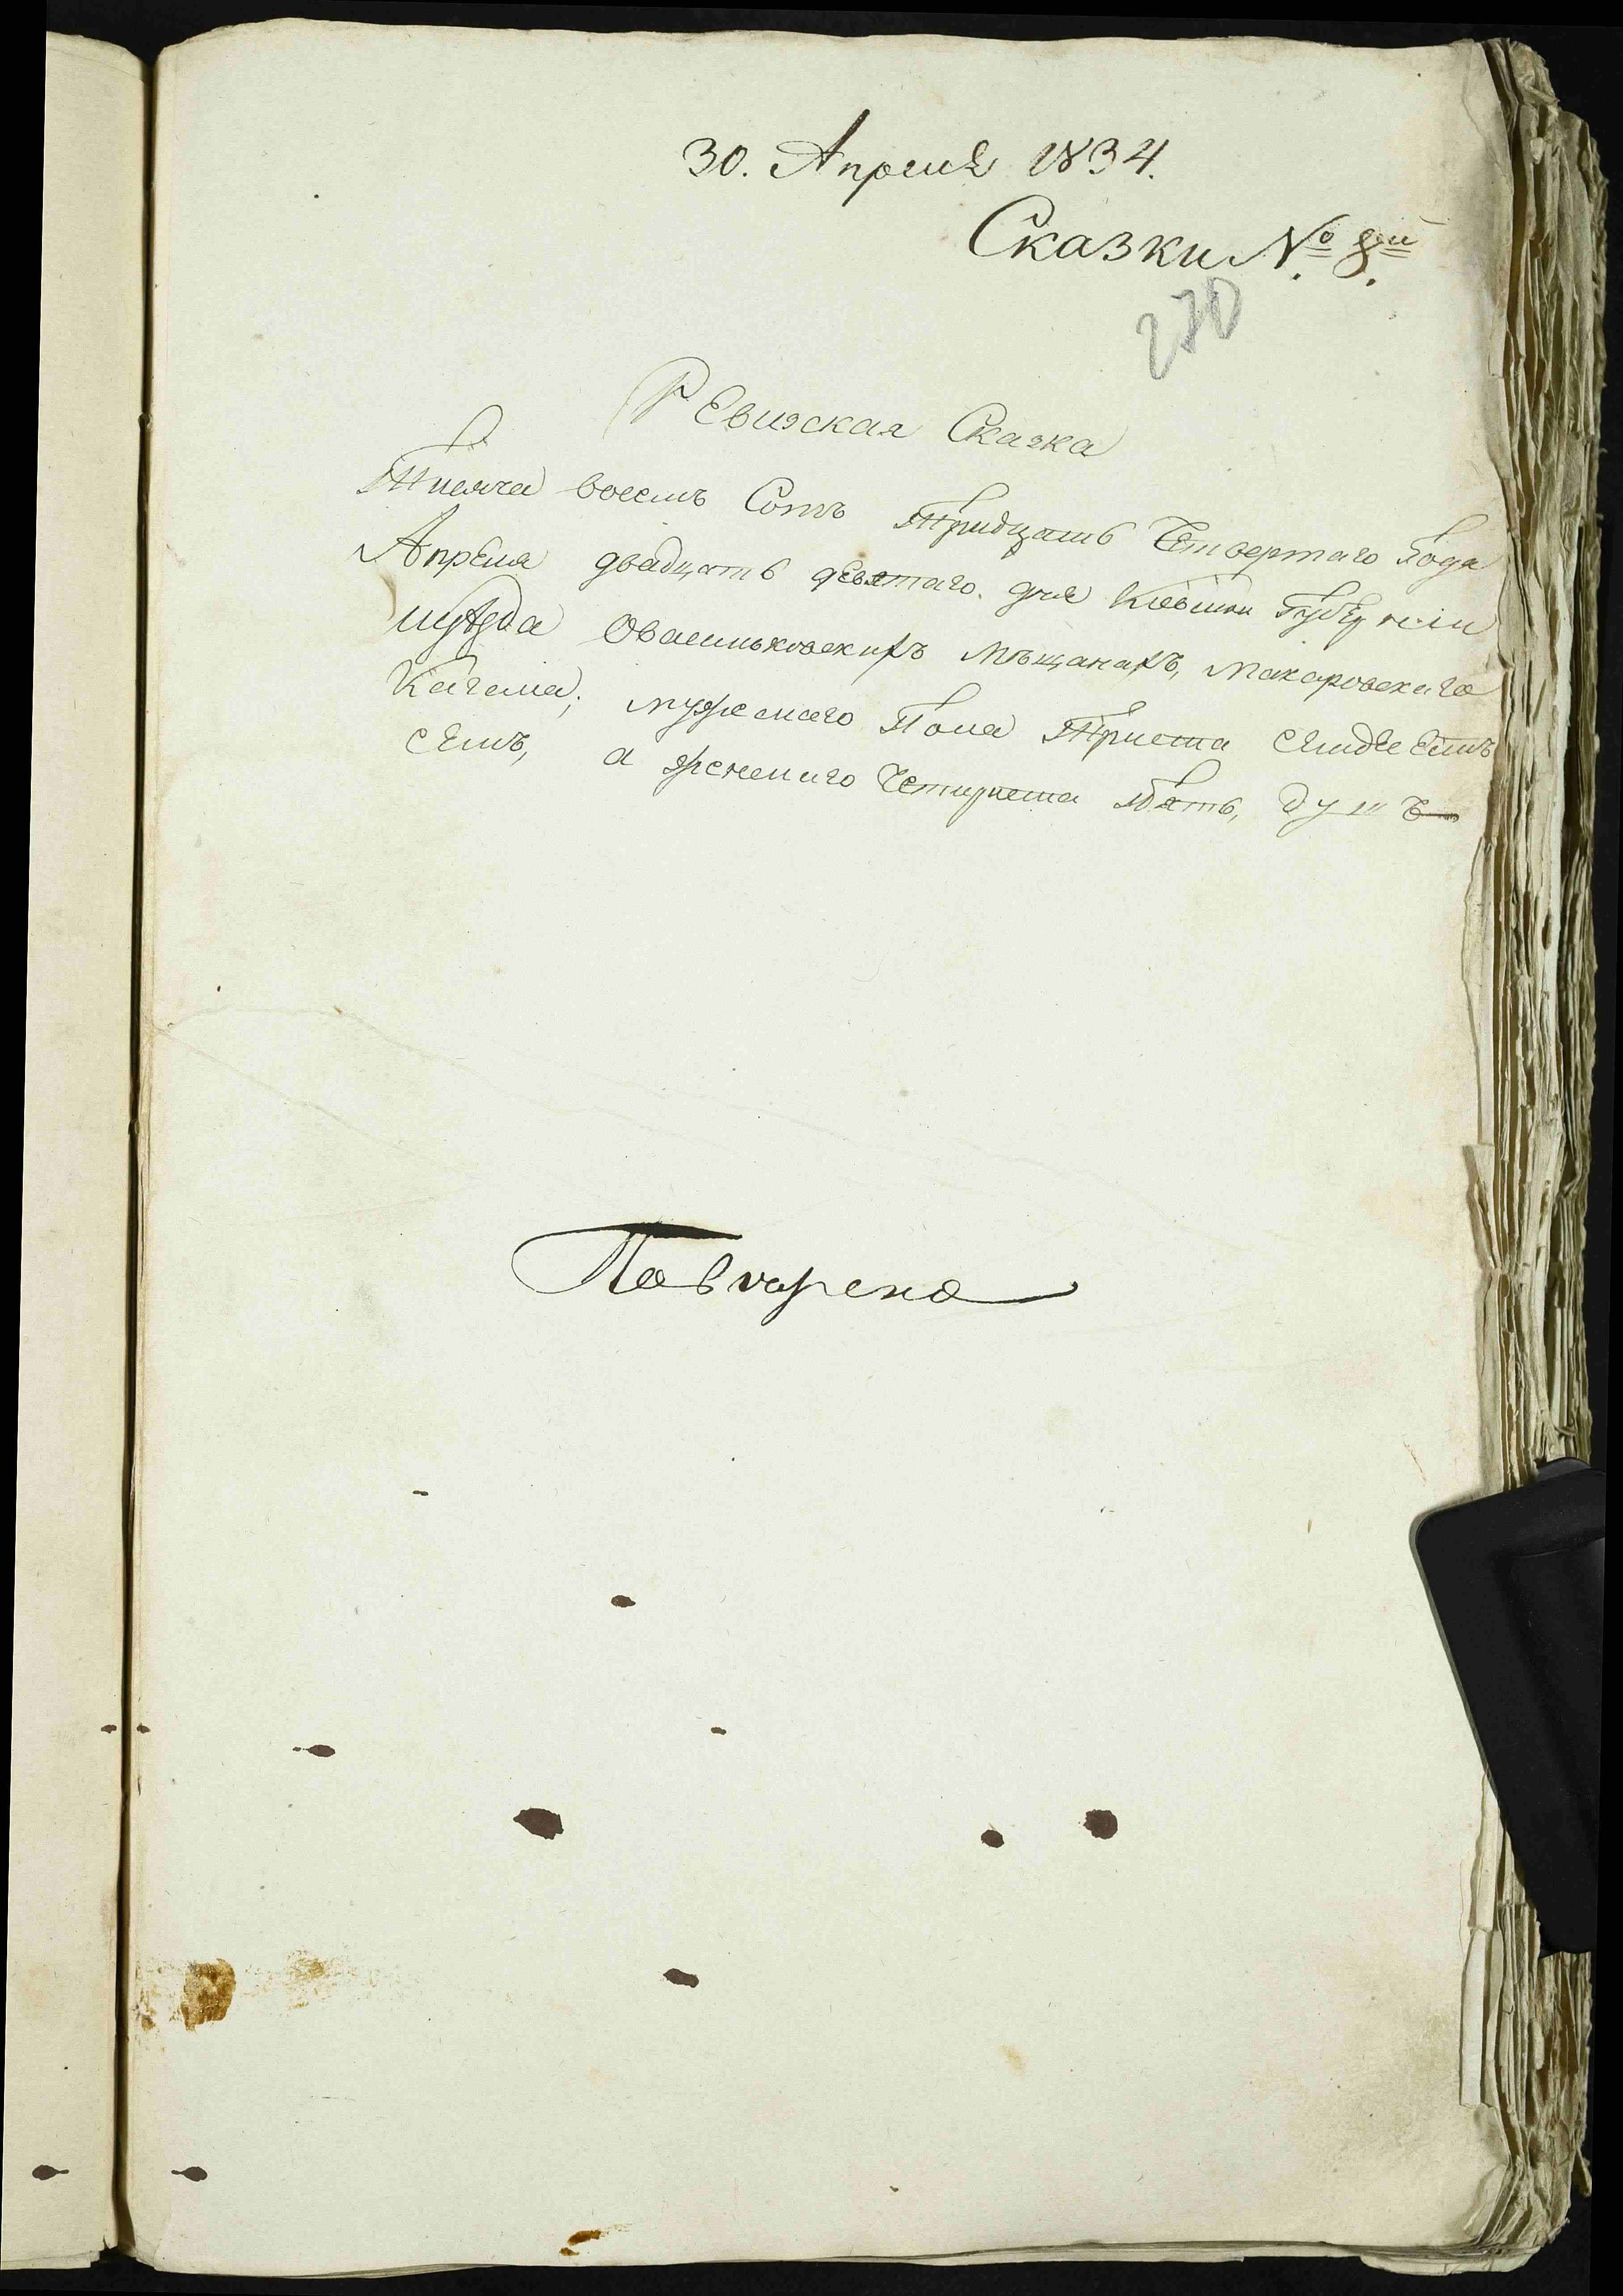 30. Апреля 1834.
Сказки № 8ей
270
РЕвизская Сказка
Тисяча восемъ Сотъ Тридцать Четвертаго Года
Апреля двадцать девятаго. дня Киевской Губернии
иуезда Овасильковскихъ мѣщанахъ, Макаровскаго
Кагала; мужескаго Пола Триста семдесетъ
семъ, а женскаго Четириста Пять, душъ
Павтарена